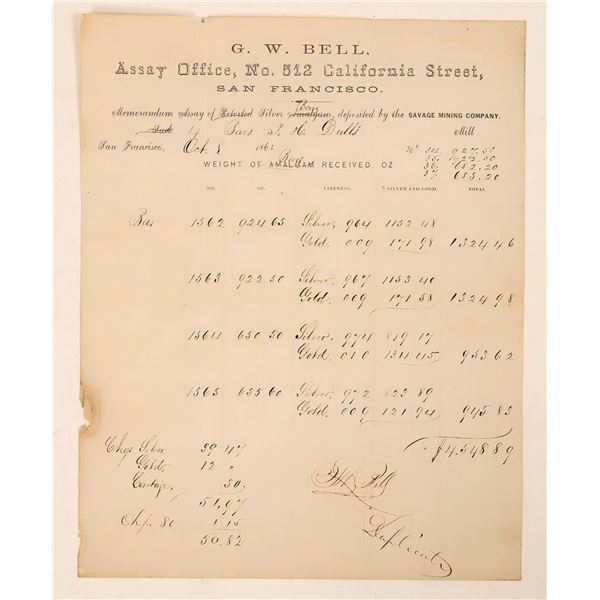 G. W. BELL,
Assay Office, No. 512 California Street,
SAN FRANCISCO.
Bars
Memorandum Assay of Retorted Silver Amalgam, deposited by the SAVAGE MINING COMPANY.
4 Bars J. H. Dalls Mill
San Francisco, Oct 8 186 No 34. 927.50
35. 922.50
Bars 36. 652.20
WEIGHT OF AMALGAM RECEIVED, OZ. 37. 655.20
NO. OZ. FINENESS. SILVER AND GOLD. TOTAL.
Bar 1562 924 65 Silver, 964 1152 48
Gold. 009 171 98 1324 46
1563 922 50 Silver, 967 1153 40
Gold. 009 171 58 1324 98
1564 650 50 Silver, 974 819 17
Gold, 010 134 45 953 62
1565 655 60 Silver, 972 823 89
Gold, 009 121 94 945 83
$4548 89
Chgs Silver 39 47
Gold, 12 "
Cartage, 50
51.97
Chip. 80 1 15
50.82
Bell
Duplicate